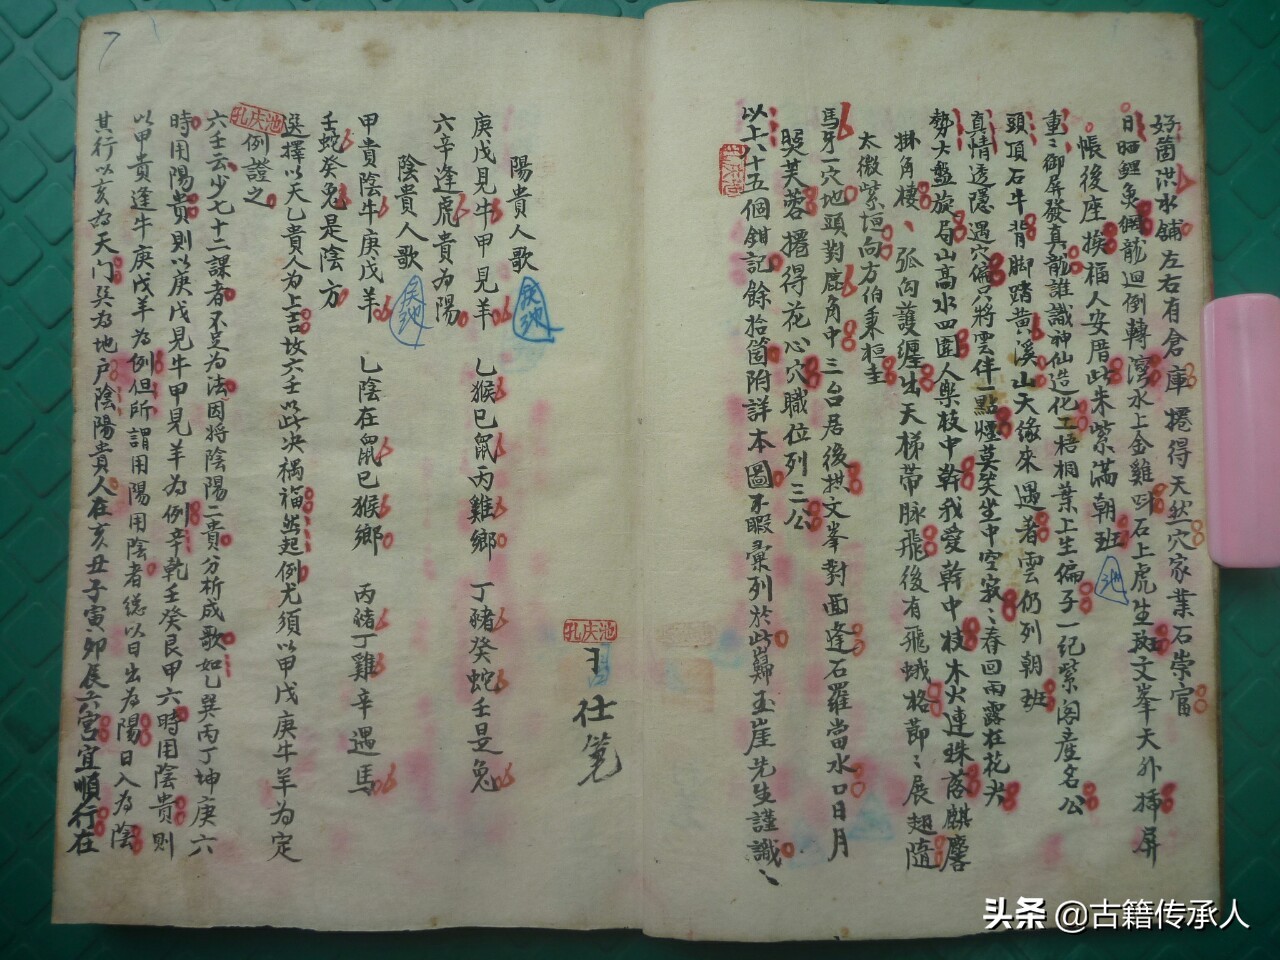 好箇洪水舖左右有倉庫擾得天然穴家業石崇富
日晒鯉魚網龍迴倒轉灣水上金雞叫石上虎生班文峯天外插屏
帳後座挨福人安厝此朱紫滿朝班
重〻御屏發真龍誰識神仙造化工梧桐葉上生偏子一纪紫阁產名公
頭頂石牛背脚踏黄溪山天缘來遇著雲仍列朝班
真情透隱遇穴偏只將雲伴一點煙莫笑坐中空寂〻春回雨露在花尖
勢大盤旋局山高水四圍人樂枝中幹我愛幹中枝木火連珠落麒麐
掛角樓、弧向護纏出天梯帶脉飛後有飛蛾格節〻展翅隨
太微紫垣向方伯秉桓圭
馬牙一穴地頭對鹿角中三台居後拱文峯對面逢石羅當水口日月
照芙蓉擾得花心穴職位列三公
以上六十五個鉗記餘拾箇附詳本圖不暇彙列於此歸玉崖先生謹識
仕笔
陽貴人歌
庚戊見牛甲見羊 乙猴巳鼠丙雞鄉 丁豬癸蛇壬是兔
六辛逢虎貴為陽
陰貴人歌
甲貴陰牛庚戊羊 乙陰在鼠巳猴鄉 丙豬丁雞辛遇馬
壬蛇癸兔是陰方
選擇以天乙貴人為上吉故六壬以此决禍福然起例尤須以甲戊庚牛羊為定
例證之
六壬云少七十二課者不足為法因將陰陽二貴分析成歌如乙巽丙丁坤庚六
時用陽貴則以庚戊見牛甲見羊為例辛乾壬癸艮甲六時用陰貴則
以甲貴逢牛庚戊羊為例但所謂用陽用陰者緦以日出為陽日入為陰
其行以亥為天门巽為地户陰陽貴人在亥丑子寅卯辰六宮宜順行在
孔庆池
孔庆池
头条 @古籍传承人